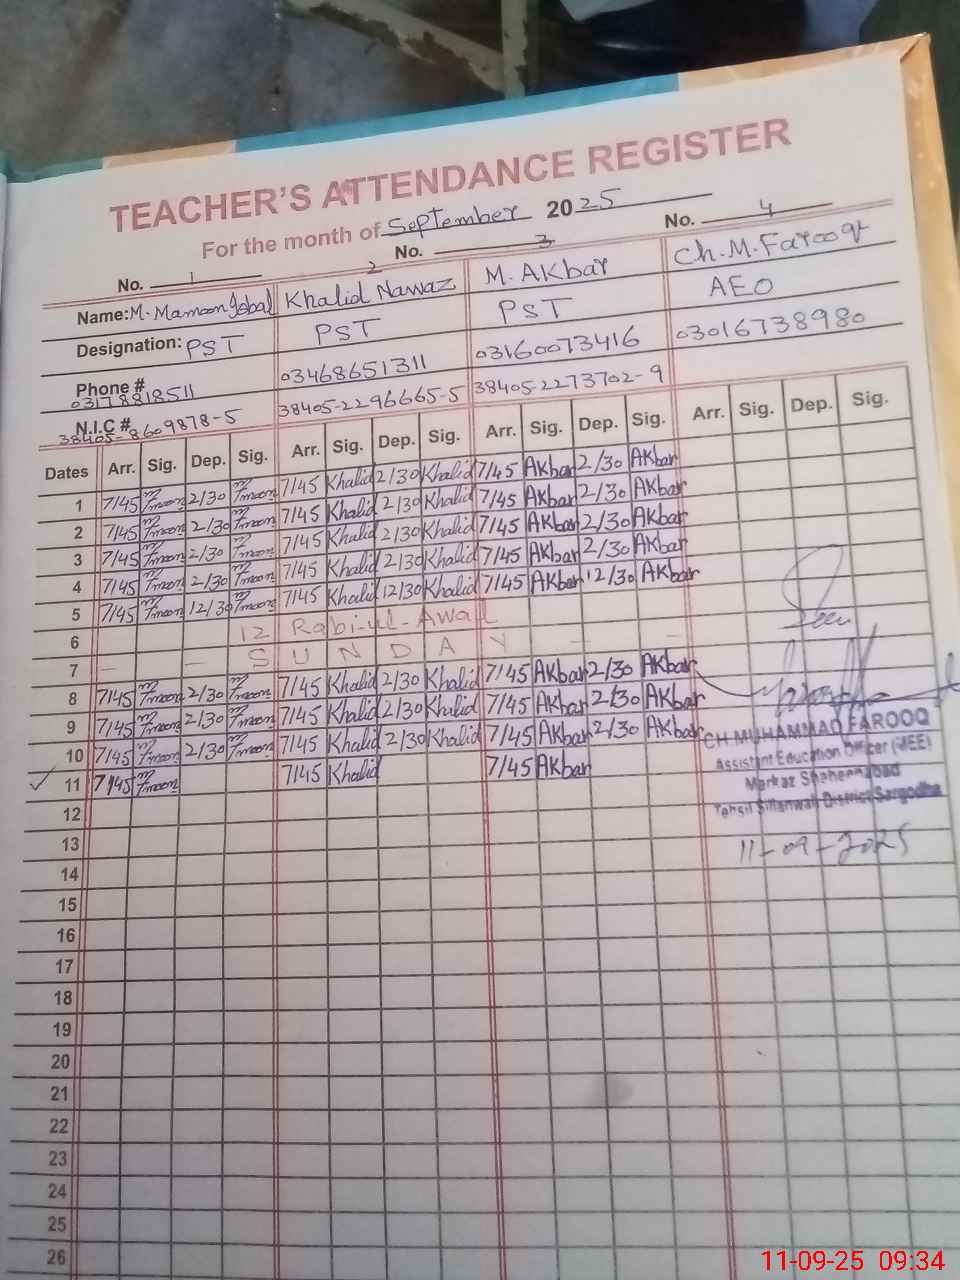 TEACHER'S ATTENDANCE REGISTER
For the month of September 2025
No. 1 2 No. 3 No. 4
Name: M. Mamoon Iqbal Khalid Nawaz M. AKbar Ch. M. Farooq
Designation: PST PST PST AEO
Phone # 03178818511 03468651311 03160073416 03016738980
N.I.C # 38405-8609878-5 38405-2296665-5 38405-2273702-9
Dates Arr. Sig. Dep. Sig. Arr. Sig. Dep. Sig. Arr. Sig. Dep. Sig. Arr. Sig. Dep. Sig.
1 7/45 Tmoon 2/30 Tmoon 7/45 Khalid 2/30 Khalid 7/45 AKbar 2/30 AKbar
2 7/45 Tmoon 2/30 Tmoon 7/45 Khalid 2/30 Khalid 7/45 AKbar 2/30 AKbar
3 7/45 Tmoon 2/30 Tmoon 7/45 Khalid 2/30 Khalid 7/45 AKbar 2/30 AKbar
4 7/45 Tmoon 2/30 Tmoon 7/45 Khalid 2/30 Khalid 7/45 AKbar 2/30 AKbar
5 7/45 Tmoon 12/30 Tmoon 7/45 Khalid 12/30 Khalid 7/45 AKbar 12/30 AKbar
6 12 Rabi-ul-Awal
7 — — S U N D A Y — —
8 7/45 Tmoon 2/30 Tmoon 7/45 Khalid 2/30 Khalid 7/45 AKbar 2/30 AKbar
9 7/45 Tmoon 2/30 Tmoon 7/45 Khalid 2/30 Khalid 7/45 AKbar 2/30 AKbar
10 7/45 Tmoon 2/30 Tmoon 7/45 Khalid 2/30 Khalid 7/45 AKbar 2/30 AKbar
11 7/45 Tmoon 7/45 Khalid 7/45 AKbar
CH MUHAMMAD FAROOQ
Assistant Education Officer (MEE)
Markaz Shaheenabad
Tehsil Sillanwali District Sargodha
11-09-2025
12
13
14
15
16
17
18
19
20
21
22
23
24
25
26
11-09-25 09:34